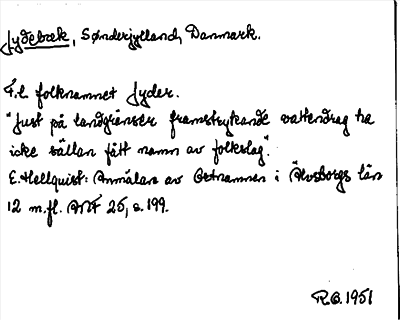 Jydebæk, Sønderjylland, Danmark.
F.l. folknamnet Jyder.
"Just på landgränser framstrykande vattendrag ha
icke sällan fått namn av folkslag".
E. Hellquist: Anmälan av Ortnamnen i Älvsborgs län
12 m.fl. ANF 25, s. 199.
R.G. 1951